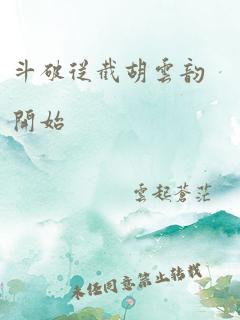 斗破從截胡雲韵
開始
雲起蒼茫
未經同意禁止轉載